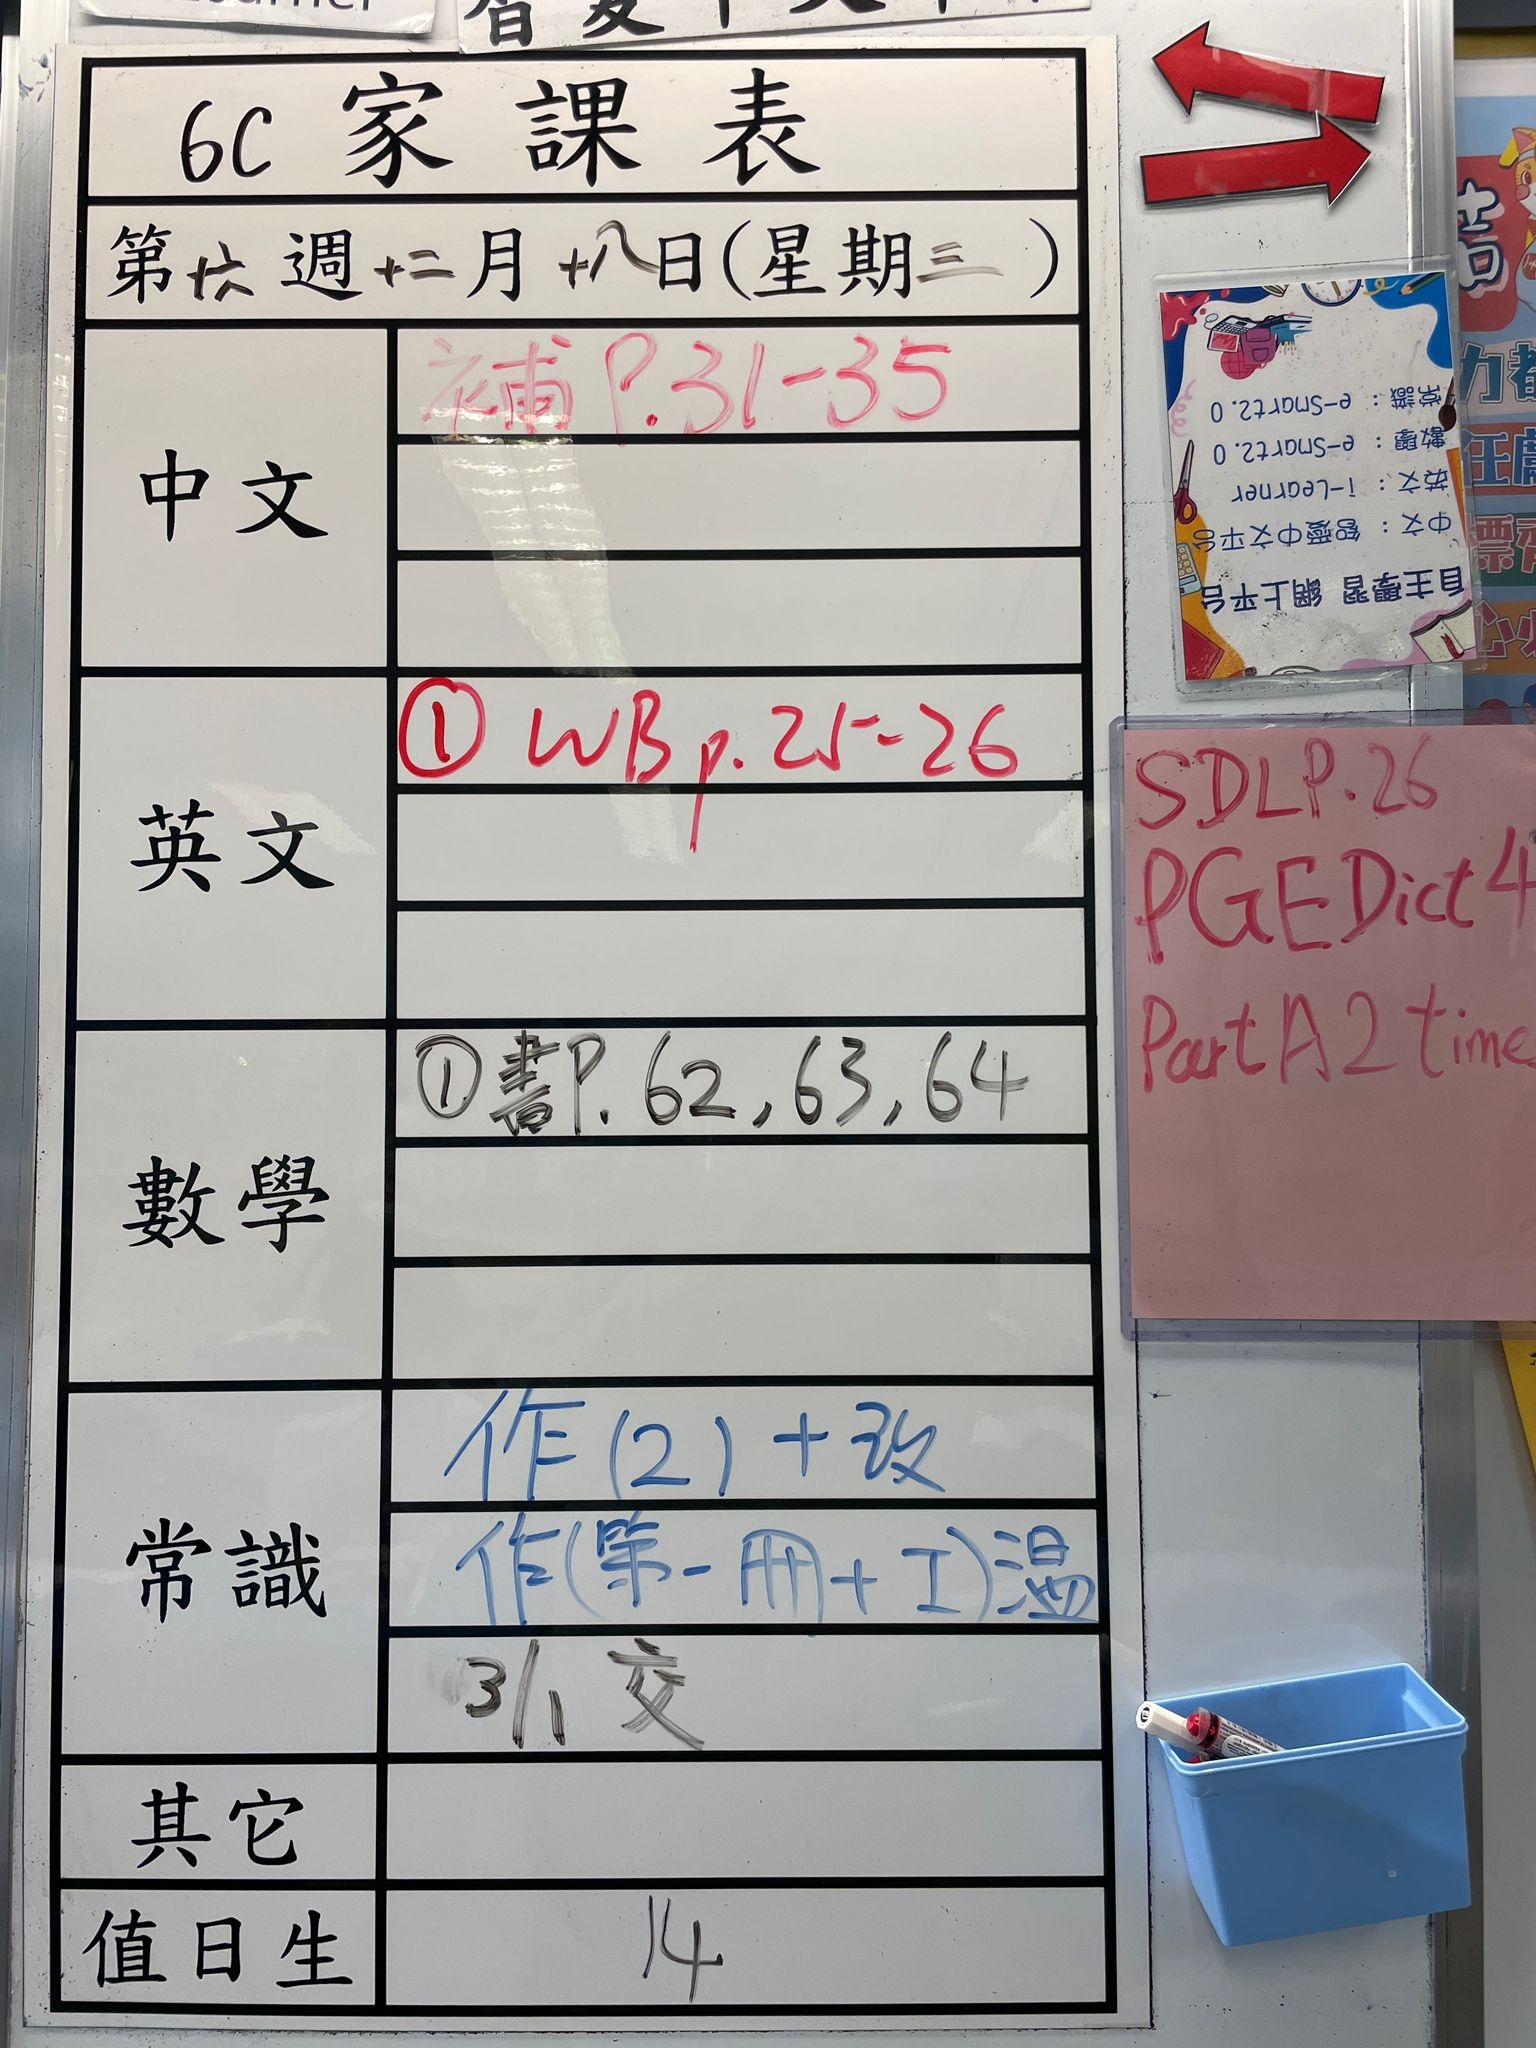 6C 家課表
第十六週十二月十八日(星期三)
中文
補 P.31-35
英文
① WB p.25-26
數學
①書P.62,63,64
常識
作(2)+改
作(第一冊+I)溫
3/1 交
其它
值日生
14
自主學習 網上平台
中文：智愛中文平台
英文：i-Learner
數學：e-Smart2.0
常識：e-Smart2.0
SDLP.26
PGEDict4
PartA2times